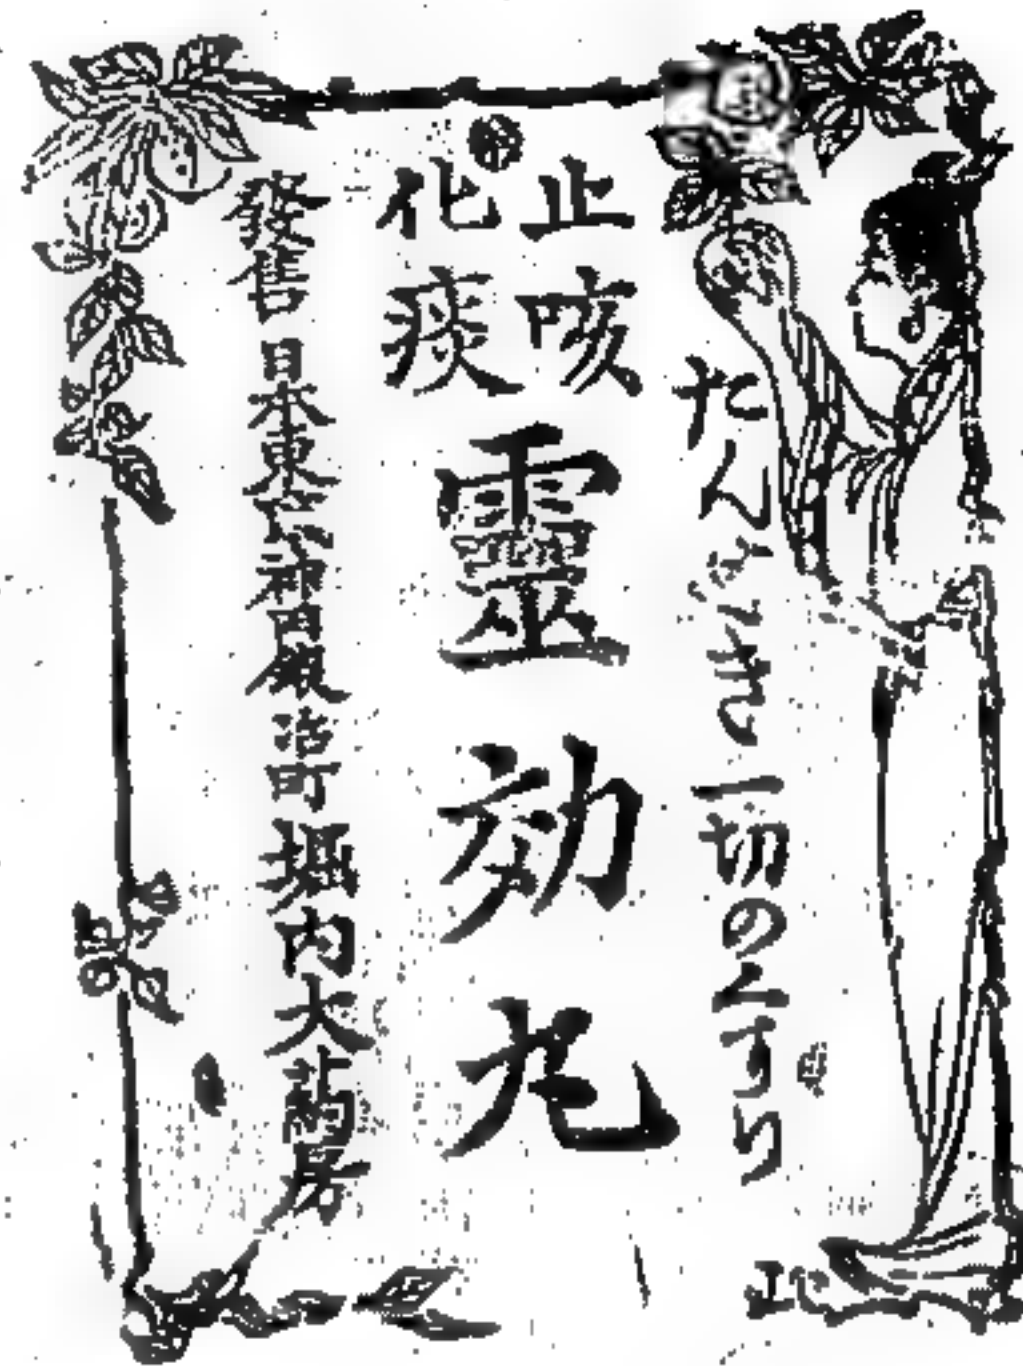 たんせき一切のくすり
止咳
化痰
靈効丸
發售 日本東京神田鍛治町 堀内大藥房